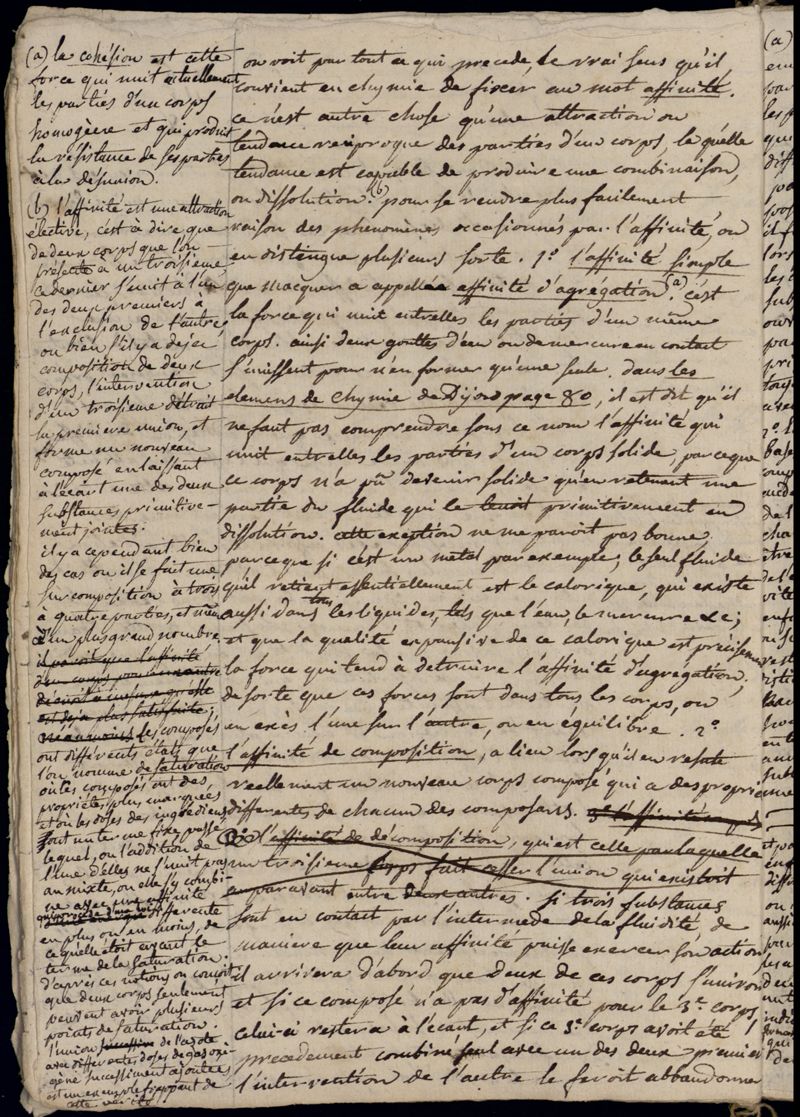 (a) la cohésion est cette
force qui unit actuellement
les parties d'un corps
homogène et qui produit
la résistance de ses parties
à la désunion.
(b) l'affinité est une attraction
élective, c'est à dire que
de deux corps que l'on
présente à un troisieme,
ce dernier s'unit à l'un
des deux premiers à
l'exclusion de l'autre,
ou bien s'il y a déja
composition de deux
corps, l'intervention
d'un troisieme détruit
la premiere union, et
forme un nouveau
composé en laissant
à l'écart une des deux
substances primitive-
ment jointes.
il y a cependant bien
des cas ou il se fait une
surcomposition à trois
à quatre parties, et même
d'un plus grand nombre
il paroit que l'affinité
d'un corps pour un autre
décroit à mesure qu'elle
est déja plus satisfaite;
néanmoins les composés
ont différents états que
l'on nomme de saturation
où les composés ont des
propriétés plus marquées
et où les doses des ingrédiens
sont unter me fixe, passé
lequel, ou l'addition de
l'une d'elles ne s'unit pas
au mixte, ou elle s'y combi-
ne avec une affinité
différente
en plus ou en moins, de
ce qu'elle étoit avant le
terme de la saturation.
d'après ces notions on conçoit
que deux corps seulement
peuvent avoir plusieurs
points de saturation.
l'union de l'azote
avec differentes doses de gaz oxi-
gène successivement ajoutées
est un exemple frappant de
cette verité.
on voit par tout ce qui precede, le vrai sens qu'il
convient en chymie de fixer au mot affinité.
ce n'est autre chose qu'une attraction ou
tendance reciproque des parties d'un corps, laquelle
tendance est capable de produire une combinaison,
ou dissolution. (b) pour se rendre plus facilement
raison des phenomènes occasionnés par l'affinité, on
en distingue plusieurs sorte. 1° l'affinité simple
que macquer a appellée affinité d'agrégation (a). c'est
la force qui unit entrelles les parties d'un même
corps. ainsi deux gouttes d'eau ou de mercure en contact
s'unissent pour n'en former qu'une seule. dans les
elemens de chymie de Dijon page 80, il est dit qu'il
ne faut pas comprendre sous ce nom l'affinité qui
unit entrelles les parties d'un corps solide, parceque
ce corps n'a pû devenir solide qu'en retenant une
partie du fluide qui le tenoit primitivement en
dissolution. cette exeption ne me paroit pas bonne
parceque si c'est un metal par exemple, le seul fluide
qu'il retient essentiellement est le calorique, qui existe
aussi dans tous les liquides, tels que l'eau, le mercure &c;
et que la qualité expansive de ce calorique est précisément
la force qui tend à detruire l'affinité d'agrégation;
de sorte que ces forces sont dans tous les corps, ou
en excès l'une sur l'autre, ou en équilibre. 2°
l'affinité de composition, a lieu lors qu'il en resulte
reellement un nouveau corps composé qui a des proprié
differentes de chacun des composants.
3° l'affinité de décomposition, qui est celle par laquelle
un troisieme corps fait cesser l'union qui existoit
auparavant entre deux autres. si trois substances
sont en contact par l'intermede de la fluidité de
maniere que leur affinité puisse exercer son action
il arrivera d'abord que deux de ces corps s'uniron
et si ce composé n'a pas d'affinité pour le 3e corps,
celui-ci restera à l'écart, et si ce 3e corps avoit été
precedement combiné seul avec un des deux premier
l'intervention de l'autre le feroit abbandonner